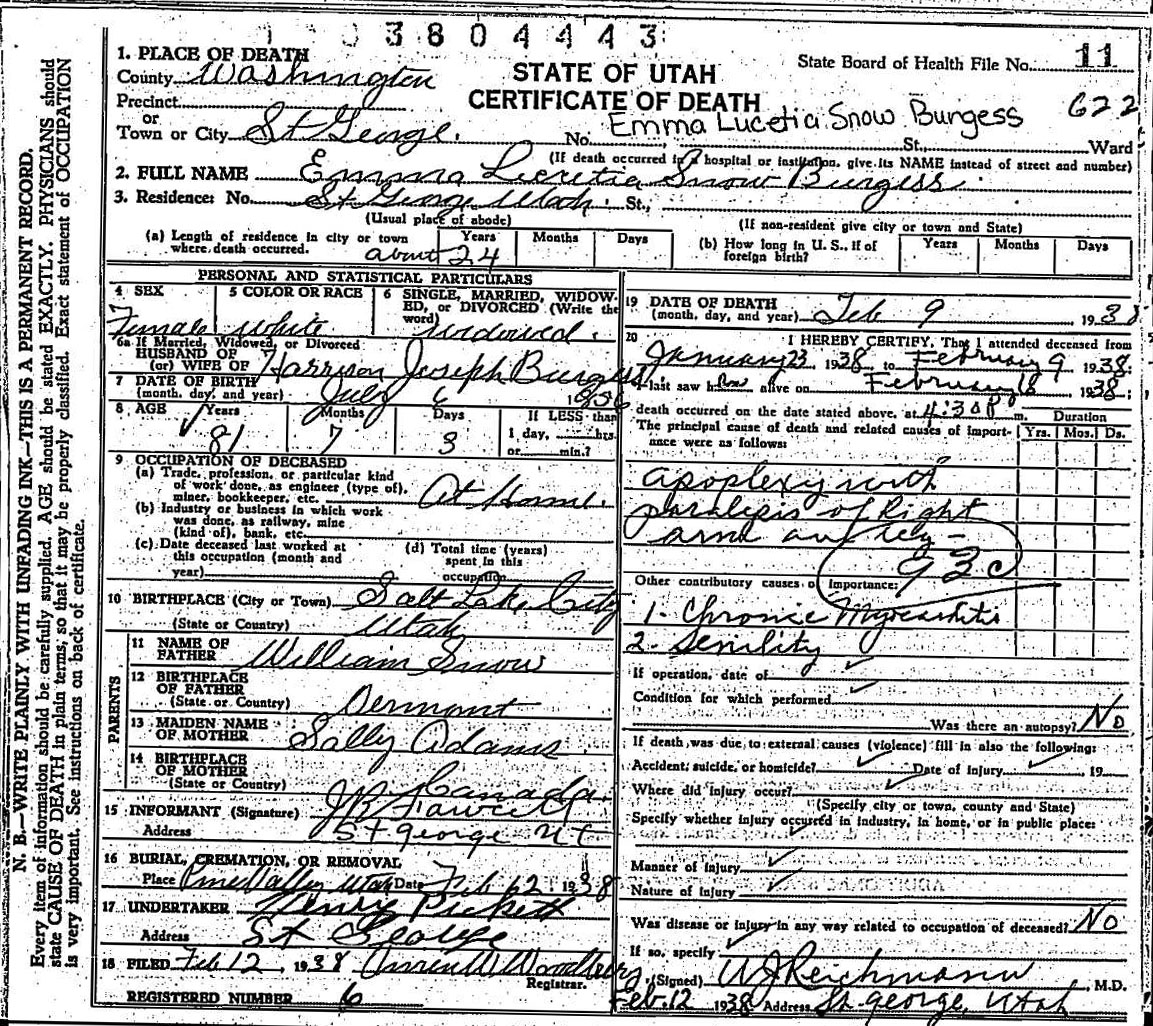 3804443
1. PLACE OF DEATH
County Washington
STATE OF UTAH
CERTIFICATE OF DEATH
State Board of Health File No. 11
622
Precinct
or
Town or City St George. No. Emma Lucetia Snow Burgess St., Ward
(If death occurred in a hospital or institution, give its NAME instead of street and number)
2. FULL NAME Emma Lucretia Snow Burgess
3. Residence: No. St George Utah. St.,
(Usual place of abode) (If non-resident give city or town and State)
(a) Length of residence in city or town where death occurred. about 24 Years Months Days
(b) How long in U. S., if of foreign birth? Years Months Days
PERSONAL AND STATISTICAL PARTICULARS
4 SEX Female
5 COLOR OR RACE white
6 SINGLE, MARRIED, WIDOWED, or DIVORCED (Write the word) widowed.
6a If Married, Widowed, or Divorced
HUSBAND OF
(or) WIFE OF Harrison Joseph Burgess
7 DATE OF BIRTH
(month, day, and year) July 6 1856
8 AGE Years 81 Months 7 Days 3
If LESS than
1 day, hrs.
or min.?
9 OCCUPATION OF DECEASED
(a) Trade, profession, or particular kind
of work done, as engineer (type of),
miner, bookkeeper, etc. At Home.
(b) Industry or business in which work
was done, as railway, mine
(kind of), bank, etc.
(c) Date deceased last worked at
this occupation (month and
year)
(d) Total time (years)
spent in this
occupation
10 BIRTHPLACE (City or Town) Salt Lake City
(State or Country) Utah
PARENTS
11 NAME OF
FATHER William Snow
12 BIRTHPLACE
OF FATHER
(State or Country) Vermont
13 MAIDEN NAME
OF MOTHER Sally Adams
14 BIRTHPLACE
OF MOTHER
(State or Country) Canada.
15 INFORMANT (Signature)
Address St George Ut
16 BURIAL, CREMATION, OR REMOVAL
Place Pine Valley Utah Date Feb 12 1938
17 UNDERTAKER Henry Pickett
Address St George
18 FILED Feb 12, 1938
Registrar.
REGISTERED NUMBER 6
19 DATE OF DEATH
(month, day, and year) Feb 9 1938
20 I HEREBY CERTIFY, That I attended deceased from
January 23 1938 to February 9 1938;
I last saw her alive on February 1938;
death occurred on the date stated above, at 4:30 P m.
The principal cause of death and related causes of importance were as follows:
Duration
Yrs. Mos. Ds.
apoplexy with
paralysis of Right
arm and leg -
Other contributory causes of importance:
1. Chronic Myocarditis
2. Senility
If operation, date of
Condition for which performed
Was there an autopsy? No
If death was due to external causes (violence) fill in also the following:
Accident, suicide, or homicide? Date of injury 19
Where did injury occur?
(Specify city or town, county and State)
Specify whether injury occurred in industry, in home, or in public place:
Manner of injury
Nature of injury
Was disease or injury in any way related to occupation of deceased? No
If so, specify
(Signed) W J Reichmann M.D.
Feb. 12 1938 Address St George, Utah
N. B.—WRITE PLAINLY WITH UNFADING INK—THIS IS A PERMANENT RECORD.
Every item of information should be carefully supplied. AGE should be stated EXACTLY. PHYSICIANS should
state CAUSE OF DEATH in plain terms, so that it may be properly classified. Exact statement of OCCUPATION
is very important. See instructions on back of certificate.